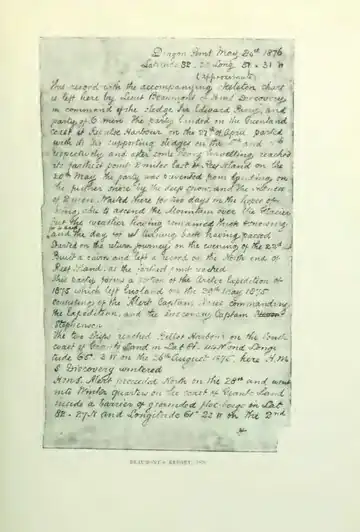 Dragon Point May 24th 1876
Latitude 82. 20 Long 51. 31 W
(approximate)
This record with the accompanying skeleton chart
is left here by Lieut Beaumont of H.M.S Discovery
in command of the sledge Sir Edward Parry, and
party of 6 men. The party landed on the Greenland
coast at Repulse Harbour on the of April, parted
with the supporting sledges on the and
respectively and after some heavy travelling reached
its farthest point 2 miles East of Reef Island on the
20th May. The party was prevented from
the further shore by the deep snow, and the
of 2 men. Waited here for two days in the hopes of
being able to ascend the Mountain over the Glacier
but the weather having remained thick & snowing
and the day for returning back having passed
started on the return journey on the evening of the 22nd
Built a cairn and left a record on the North end of
Reef Island, as the farthest point reached
This party forms a portion of the Arctic Expedition of
1875 which left England on the 29th May 1875
consisting of the Alert Captain Nares commanding
the Expedition, and the Discovery Captain
Stephenson
The two ships reached Harbour on the South
coast of Grant Land in Lat 81. and Longi
tude 65. 3 W on the 26th August 1875, here H.M
S Discovery wintered
H.M.S. Alert proceeded North on the 28th and went
into Winter quarters on the coast of Grant Land
inside a barrier of grounded floe-bergs in Lat
82. 27 N and Longitude 61. 22 W on the 2nd
BEAUMONT'S REPORT, 1876